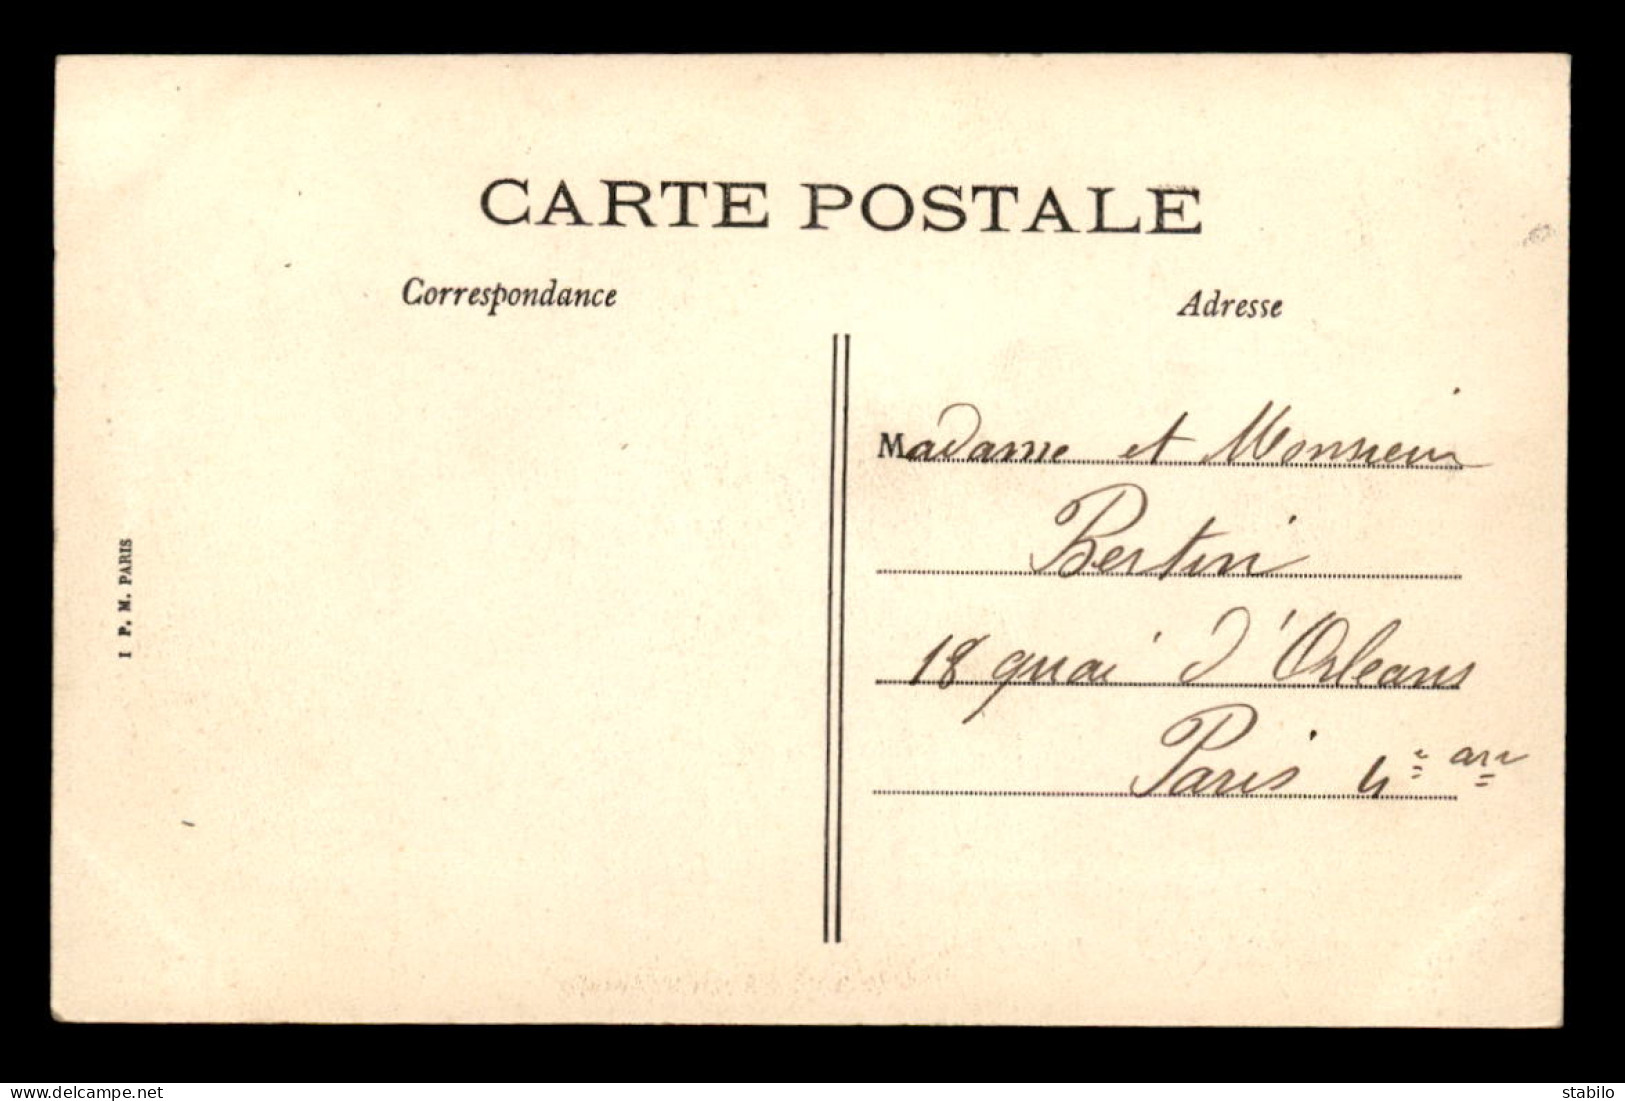 CARTE POSTALE
Correspondance
Adresse
Madame et Monsieur
Bertin
18 quai d'Orléans
Paris 4e arr
I P. M. PARIS
delcampe.net
stabilo